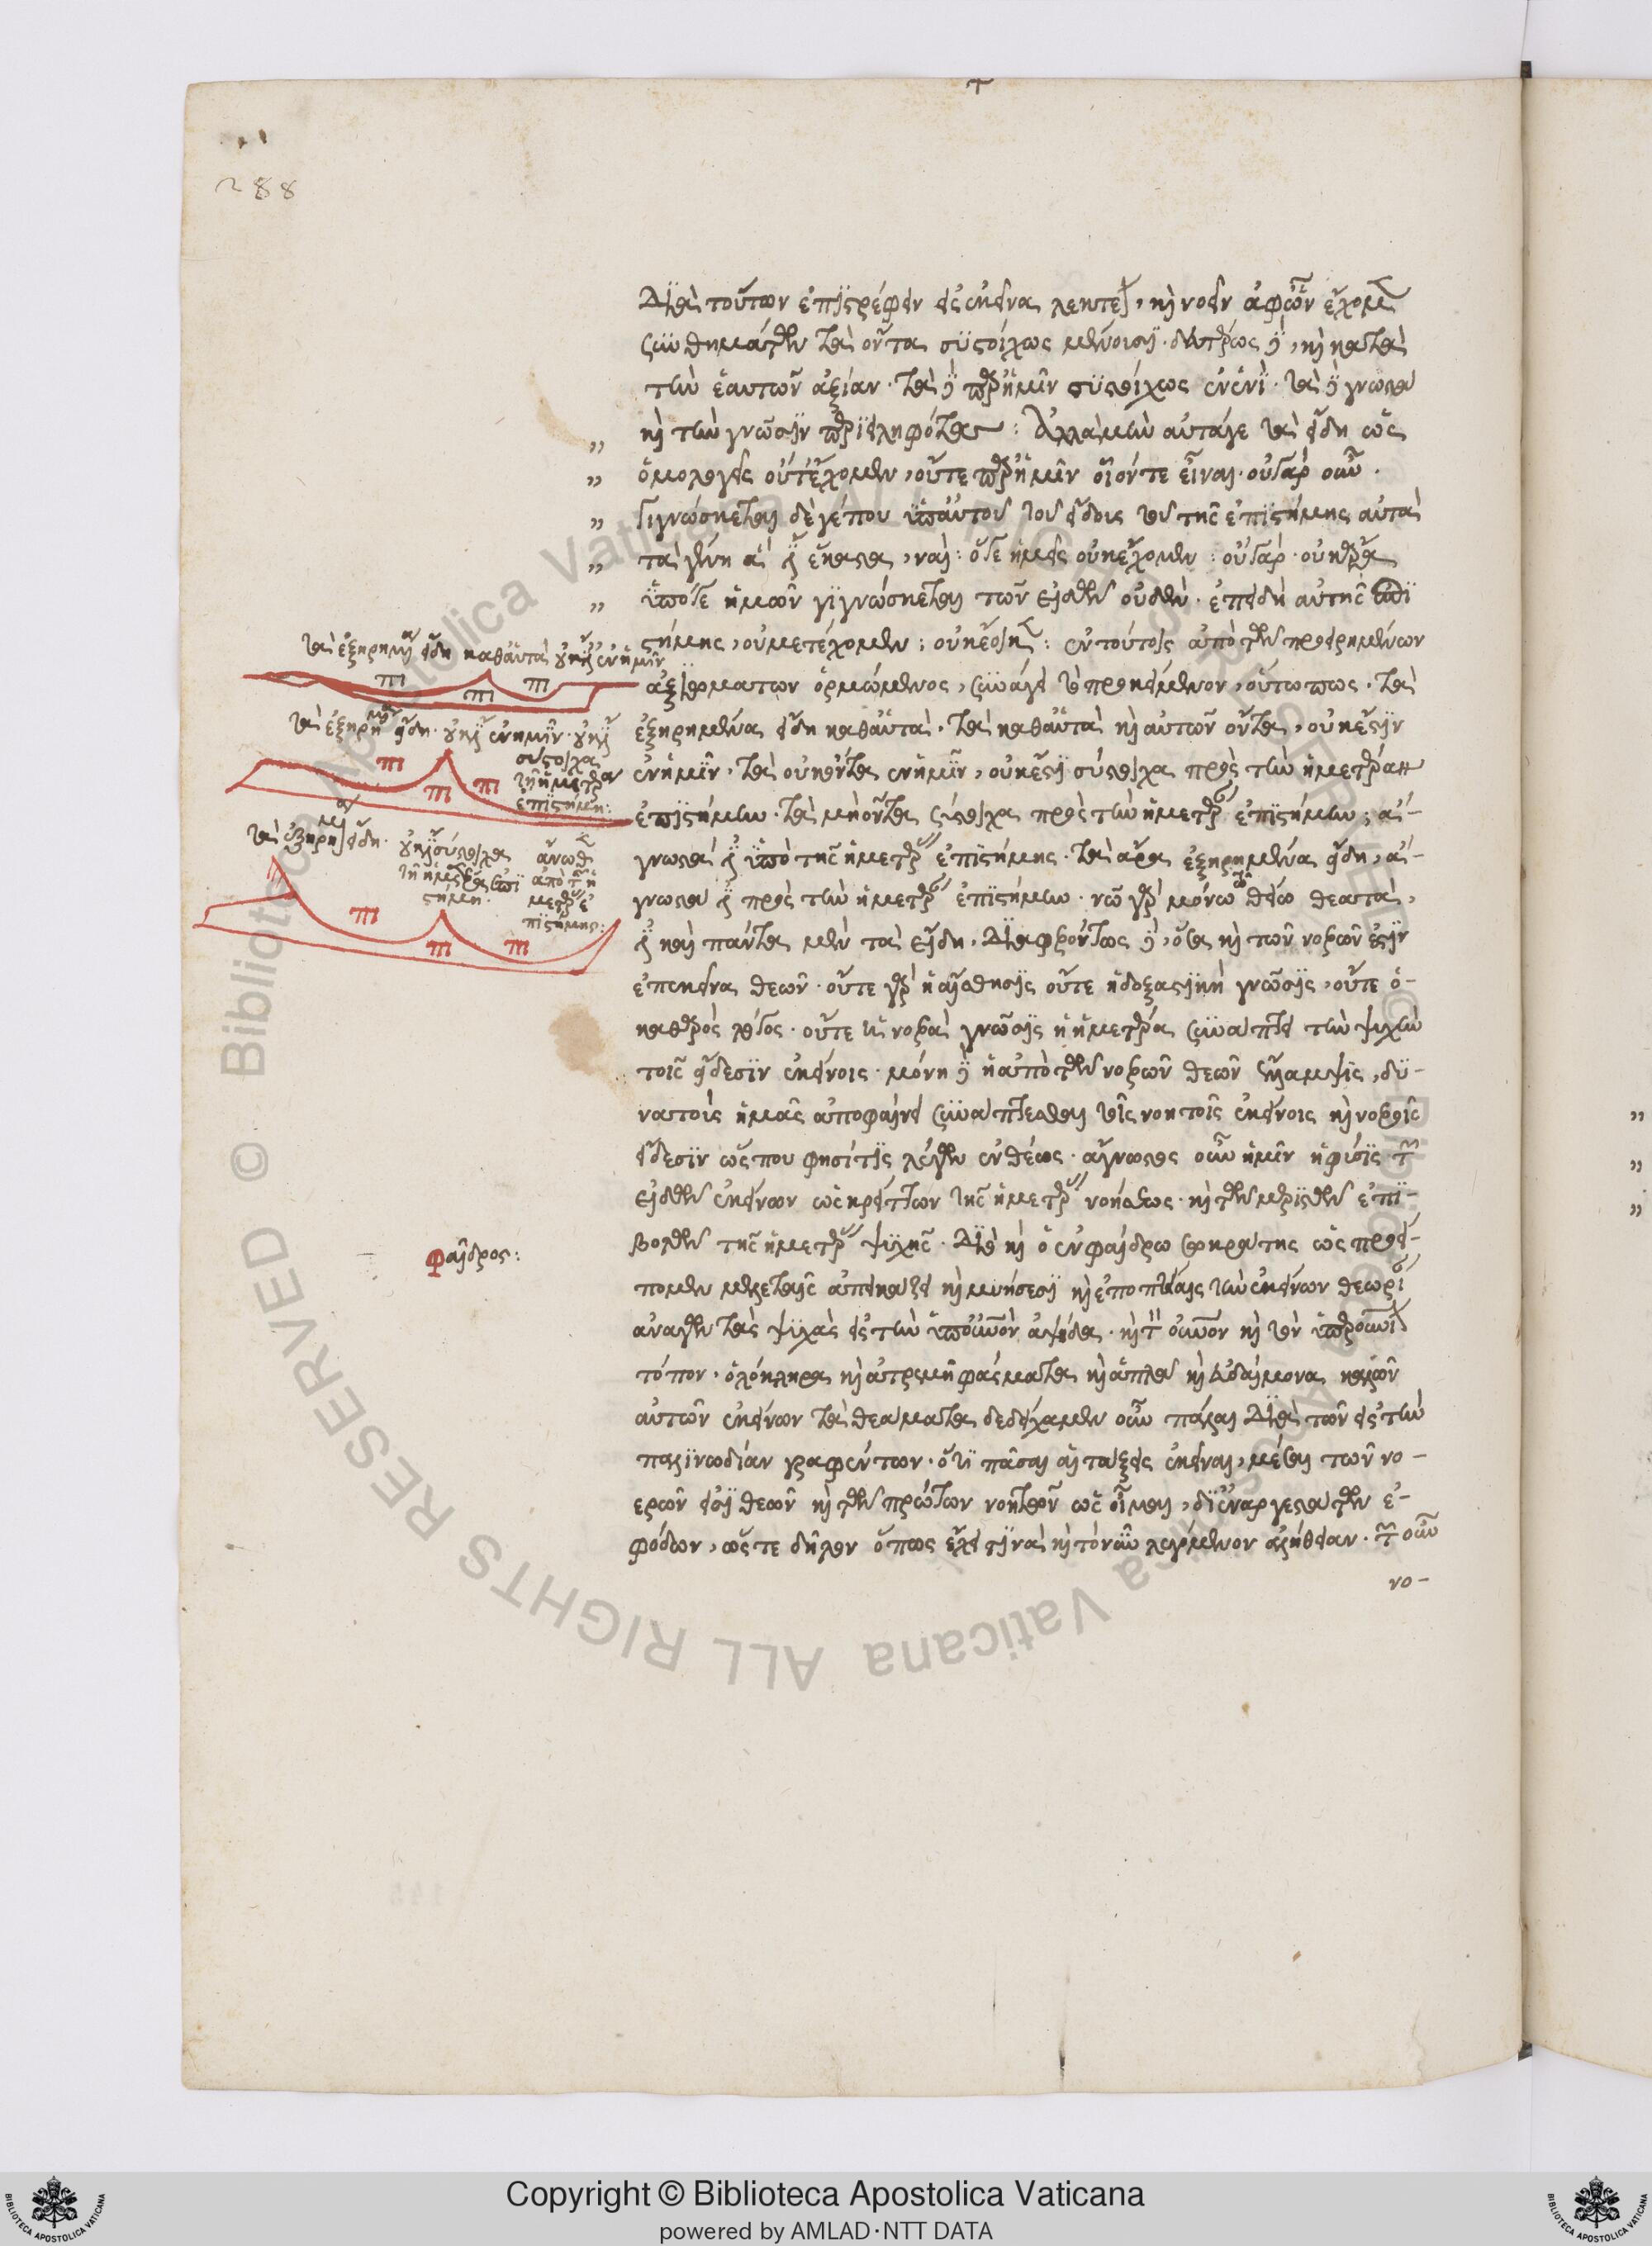 288
Διὰ τούτων ἐπιστρέφειν εἰς ἐκεῖνα λέγεται, καὶ νοεῖν ἀφ' ὧν ἔχομεν
συνθημάτων τὰ ὄντα συστοίχως μένουσι. δευτέρως δὲ, καὶ κατὰ
τὴν ἑαυτῶν ἀξίαν. τὰ δὲ παρ' ἡμῖν συστοίχως ἑνὶ. τὰ δὲ γνωστὰ
καὶ τὴν γνῶσιν περιειληφότα: Ἀλλὰ μὴν αὐτά γε τὰ εἴδη ὡς
ὁμολογεῖς οὔτ' ἔχομεν, οὔτε παρ' ἡμῖν οἷόν τε εἶναι. οὐ γὰρ οὖν.
Γιγνώσκεται δέ γέ που ὑπ' αὐτοῦ τοῦ εἴδους τοῦ τῆς ἐπιστήμης αὐτὰ
τὰ γένη ἃ ἔστιν ἕκαστα, ναί: ὅ γε ἡμεῖς οὐκ ἔχομεν: οὐ γάρ. οὐκ ἄρα
ὑπό γε ἡμῶν γιγνώσκεται τῶν εἰδῶν οὐδέν. ἐπειδὴ αὐτῆς ἐπι
στήμης, οὐ μετέχομεν: οὐκ ἔοικεν: ἐν τούτοις ἀπὸ τῶν προειρημένων
ἀξιωμάτων ὁρμώμενος, συνάγει τὸ προκείμενον, οὕτω πως. τὰ
ἐξῃρημένα εἴδη καθ' αὑτά. τὰ καθ' αὑτὰ καὶ αὐτῶν ὄντα, οὐκ ἔστιν
ἐν ἡμῖν. τὰ οὐκ ὄντα ἐν ἡμῖν, οὐκ ἔστι σύστοιχα πρὸς τὴν ἡμετέραν
ἐπιστήμην. τὰ μὴ ὄντα σύστοιχα πρὸς τὴν ἡμετέραν ἐπιστήμην, ἄ-
γνωστά ἐστι ὑπὸ τῆς ἡμετέρας ἐπιστήμης. τὰ ἄρα ἐξῃρημένα εἴδη, ἄ-
γνωστά ἐστι πρὸς τὴν ἡμετέραν ἐπιστήμην. νῷ γὰρ μόνῳ τῷ θείῳ θεατά,
ἐστι καὶ πάντα μὲν τὰ εἴδη, Διαφερόντως δὲ, ὅσα καὶ τῶν νοερῶν ἐστιν
ἐπέκεινα θεῶν. οὔτε γὰρ ἡ αἴσθησις οὔτε ἡ δοξαστικὴ γνῶσις, οὔτε ὁ
καθαρὸς λόγος. οὔτε ἡ νοερὰ γνῶσις ἡ ἡμετέρα συνάπτει τὴν ψυχὴν
τοῖς εἴδεσιν ἐκείνοις. μόνη δὲ ἡ ἀπὸ τῶν νοερῶν θεῶν ἔλλαμψις, δυ-
νατοὺς ἡμᾶς ἀποφαίνει συνάπτεσθαι τοῖς νοητοῖς ἐκείνοις καὶ νοεροῖς
εἴδεσιν ὥς που φησί τις λέγων ἐνθέως. ἄγνωστος οὖν ἡμῖν ἡ φύσις τῶν
εἰδῶν ἐκείνων ὡς κρείττων τῆς ἡμετέρας νοήσεως. καὶ τῶν μεριστῶν ἐπι-
βολῶν τῆς ἡμετέρας ψυχῆς. Διὸ καὶ ὁ ἐν φαίδρῳ σωκράτης ὡς προεί-
πομεν τελεταῖς ἀπεικάζει καὶ μυήσεσι καὶ ἐποπτείαις τὴν ἐκείνων θεωρίαν
ἀνάγων τὰς ψυχὰς εἰς τὴν ὑπουράνιον ἁψῖδα. καὶ τὸν οὐρανὸν καὶ τὸν ὑπερουράνιον
τόπον. ὁλόκληρα καὶ ἀτρεμῆ φάσματα καὶ ἁπλᾶ καὶ εὐδαίμονα καλῶν
αὐτῶν ἐκείνων τὰ θεάματα δεδείχαμεν οὖν πάλαι Διὰ τῶν εἰς τὴν
παλινῳδίαν γραφέντων. ὅτι πᾶσαι αἱ τάξεις ἐκεῖναι, μέσαι τῶν νο-
ερῶν εἰσι θεῶν καὶ τῶν πρώτων νοητῶν ὡς οἶμαι, δι' ἐναργεστάτων ἐ-
φόδων, ὥστε δῆλον ὅπως ἔχει τινὰ καὶ τὸ νῦν λεγόμενον ἀλήθειαν. τῶν οὖν
νο-
τὰ ἐξῃρημένα εἴδη καθ' αὑτὰ οὐκ ἔστιν ἐν ἡμῖν
τὰ ἐξῃρημένα εἴδη. οὐκ ἔστιν ἐν ἡμῖν. οὐκ ἔστι
σύστοιχα
τῇ ἡμετέρᾳ
ἐπιστήμῃ:
τὰ ἐξῃρημένα εἴδη. οὐκ ἔστι σύστοιχα
τῇ ἡμετέρᾳ ἐπι
στήμῃ.
ἄγνωστα
ἀπὸ τῆς ἡ
μετέρας ἐ
πιστήμης:
φαῖδρος:
Copyright © Biblioteca Apostolica Vaticana
powered by AMLAD·NTT DATA